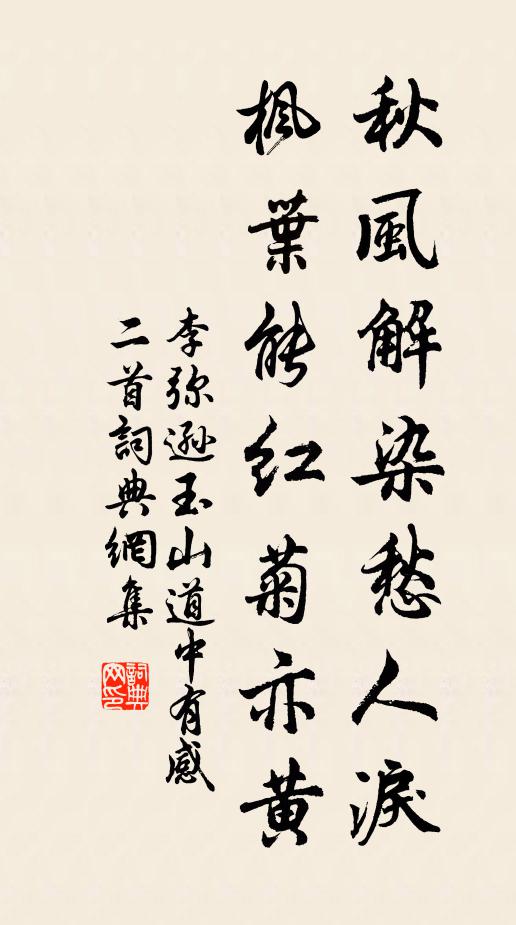 秋風解染愁人淚
楓葉能紅菊亦黃
李弥遜玉山道中有感
二首詞典網集
詞典
网印